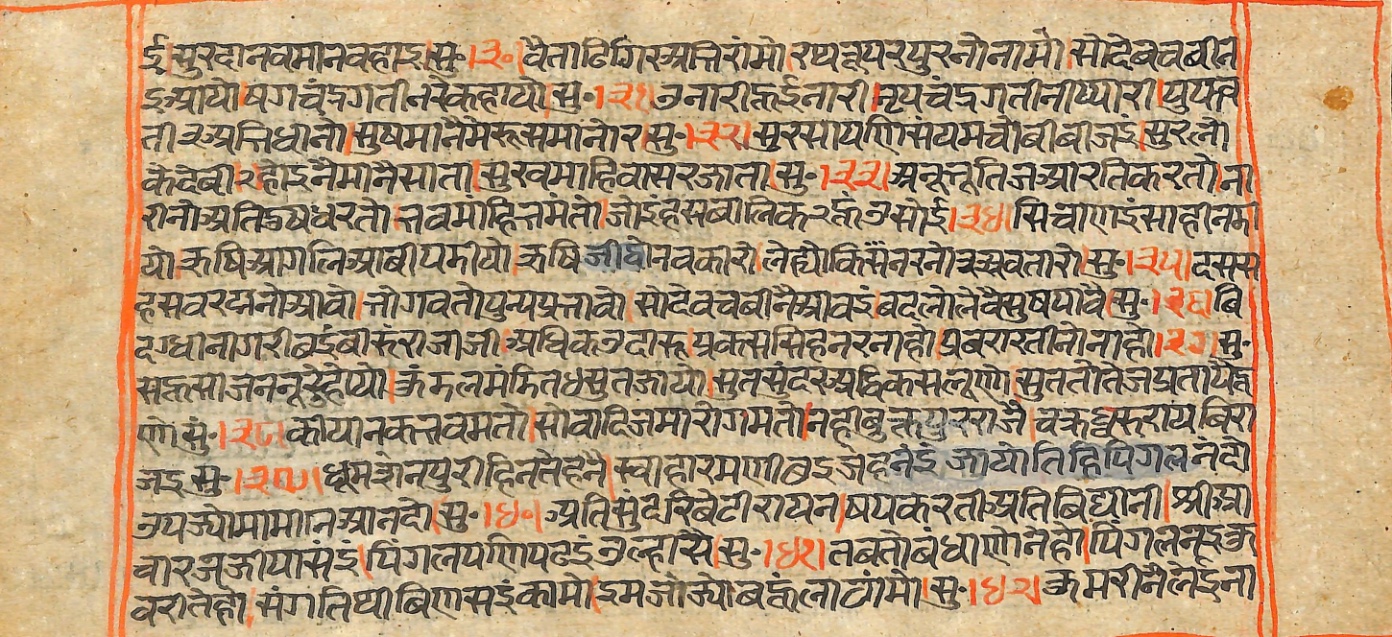 ई।सुरदानवमानवहाइ।सु॰।३०।वैताढिगिरअभिरांमो।रथनूपरपुरनोनामो।सोदेवचवीनै
इआयो।षगचंद्रगतीनरेकहायो।सु॰।३१।उनारीहूईनारी।नृपचंद्रगतीनीप्यारी।पुण्यव
तीअभिधांनो।सुषमांनैमेरूसमांनोरे।सु॰।३२।सुरसापणिसंयमचोबीबीजइं।सुरलो
केदेवी२होइनैमानैसाता।सुखमाहिवासरजाता।सु॰।३३।अनूभूतिजआरतिकरतो।ना
रीनोअतिदुषधरतो।भवमांहिभमंतो।जोइंहंसबालिकरहूंउसोई।३४।सिंचाणइंसाहीनमी
यो।ऋषिआगलिआवीपडीयो।ऋषिजीवोनवकारो।लेह्योकिंसनरनोअवतारो।सु॰।३५।दससस
हसवरसनोआवो।भोगवतोपुन्यप्रभावो।सोदेवचवीनैआवइं।बदलोलेवैसुषपावै।सु॰।३६।वि
दग्धानागरीबइंबारूंराजाजी।अधिकउदारू।प्रकाससिंहनरनाहो।प्रवरारतीनोनाहो।३७।सु॰
सहूसाजननूरेहोयो।कुंमलमंडितधसुतजायो।सुतसुंदरअधिकसलूणो।सुततोतेजप्रतापेहू
णो।सु॰।३८।कीयानकभवमतो।सोवादिजमारोगमतो।नहीबुकपुरराजै।चक्रध्वरूरायबिरा
जइ।सु॰।३९।धूमशेनपुरोहिनतेहनै।स्वाहारमणीबइजेहनेंइजायोतिहिपिंगलनंदो
उपज्योमामानिआनंदो।सु॰।४०।अतिसुंदरिबेटीरायन।षपकरतीअतिविद्यानी।श्रीआ
चारजजीपासंइं।पिंगलपणिपढइंउल्हासे।सु॰।४१।तबतोबंधाणोनेहो।पिंगलनृइकु
वरीतेहो।संगतिथीबिणसइंकामो।इमजोज्योबहूंलाठांमो।सु॰।४२।कुमरीनैलेईना